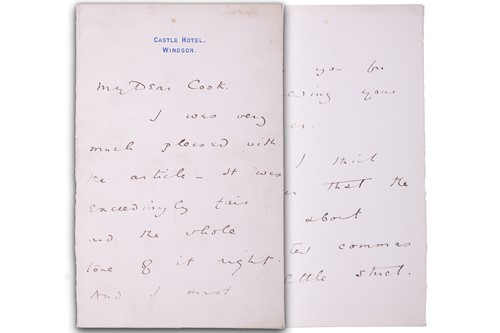 CASTLE HOTEL,
WINDSOR.
My Dear Cook.
I was very
much pleased with
the article – It was
exceedingly fair
and the whole
tone of it right.
And I must
you for
your
I think
that the
about
commas
little